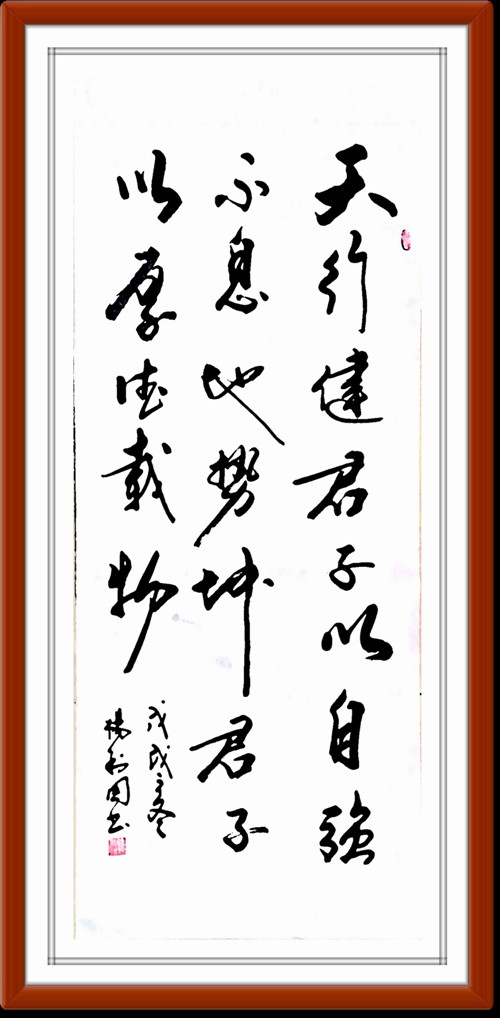 天行健君子以自強
不息地势坤君子
以厚德载物
戊戌之冬
楊利国书